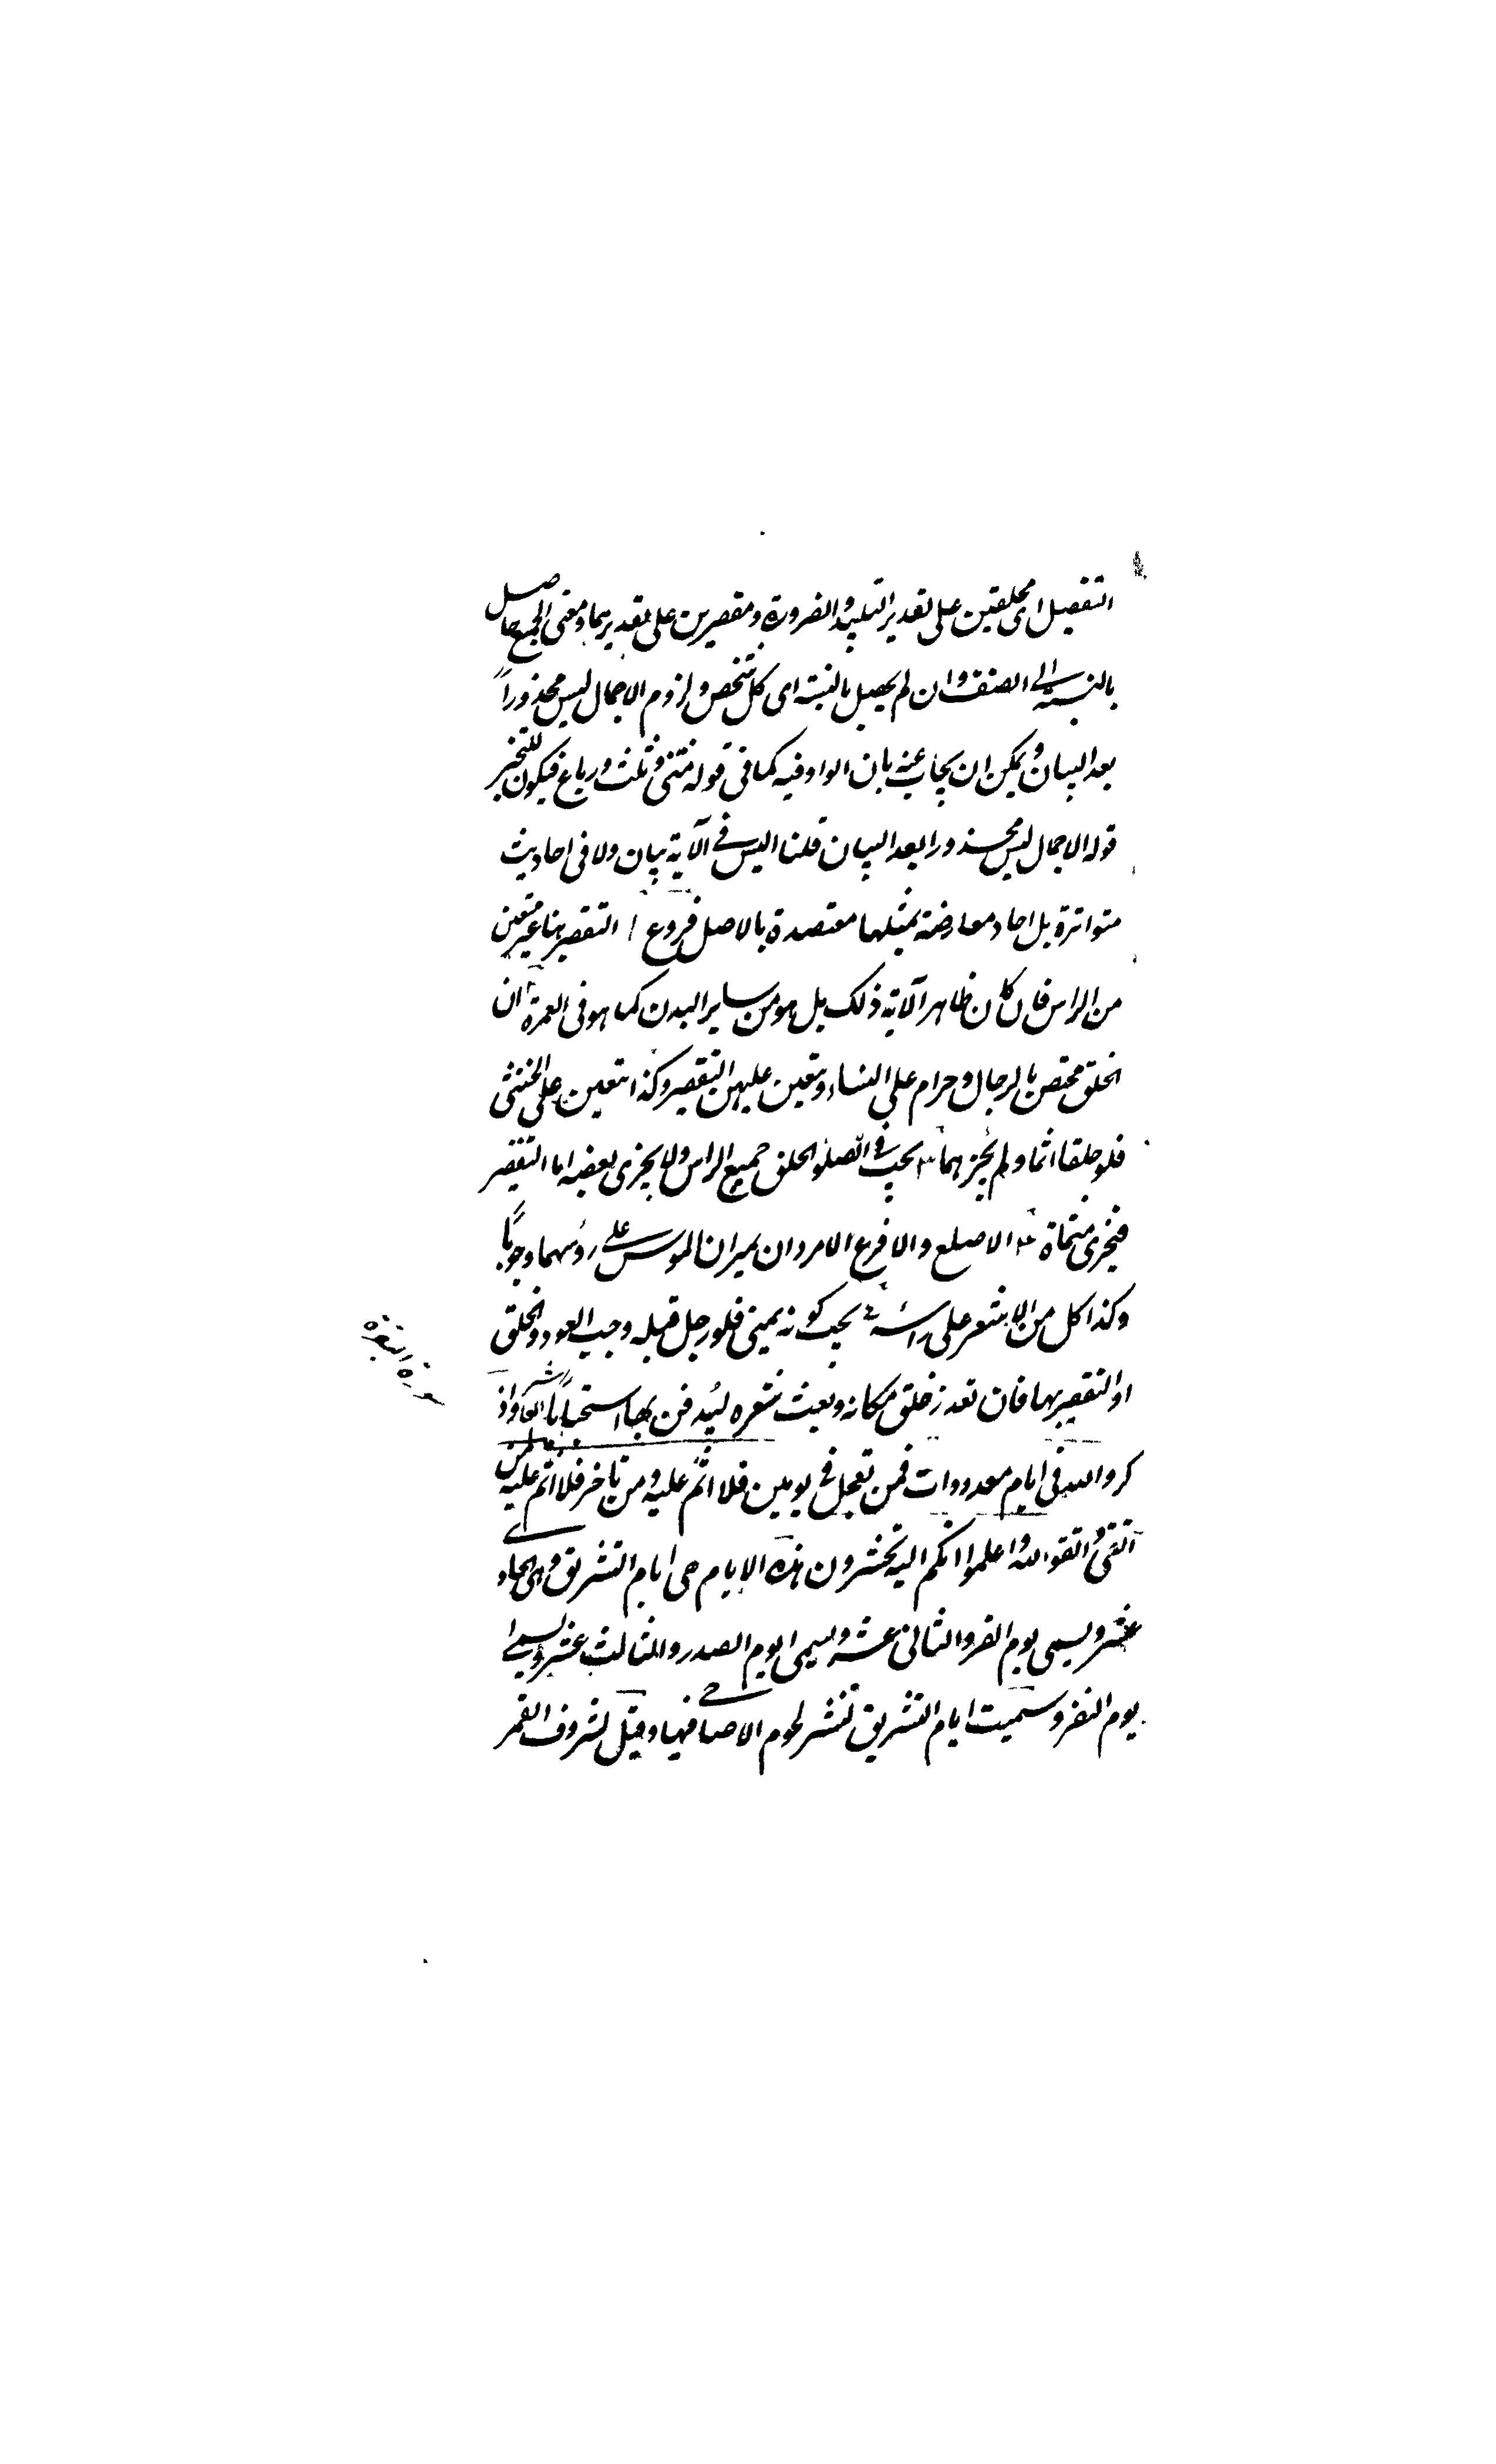 التفصيل اى محلقين على تقدير التلبيد والضرورة ومقصرين على تقديرهما ومعنى الجمع حاصل
بالنسبة الى الصنف وان لم يحصل بالنسبة اى كل شخص ولزوم الاجمال ليس محذوراً
بعد البيان ويمكن ان يجاب عنه بان الواو فيه كما فى قوله مثنى وثلث ورباع فيكون للتخير
قوله الاجمال ليس محذورا بعد البيان قلنا ليس فى الآية بيان ولا فى احاديث
متواترة بل احاد معارضة بمثلها معتضدة بالاصل فروع ا التقصير هنا غير متعين
من الراس فان كان ظاهر الآية ذلك بل هو من ساير البدن كما هو فى العمرة ٢ ان
الحلق مختص بالرجال وحرام على النساء ويتعين عليهن التقصير وكذا يتعين على الخنثى
فلو حلقا اثما ولم يجزهما ٣ يجب فى الحلق جميع الراس ولا يجزى بعضه اما التقصير
فيجزى مسماة ٤ الاصلع والاقرع الامردان يمران الموسى على رؤسهما وجوباً
وكذا كل من لا شعر على راسه يجب كونه بمنى فلو رحل قبله وجب العود والحلق
او التقصير بها فان تعذر حلق مكانه وبعث شعره ليدفن بها استحباباً واذ
كروا الله فى ايام معدودات فمن تعجل فى يومين فلا اثم عليه ومن تاخر فلا اثم عليه لمن
اتقى واتقوا الله واعلموا انكم اليه تحشرون هذه الايام هى ايام التشريق وهى الحادى
عشر ويسمى يوم القر والثانى عشر ويسمى يوم الصدر والثالث عشر ويسمى
يوم النفر وسميت ايام التشريق لنشر لحوم الاضاحى فيها وقيل لشروق القمر
سورة البقرة